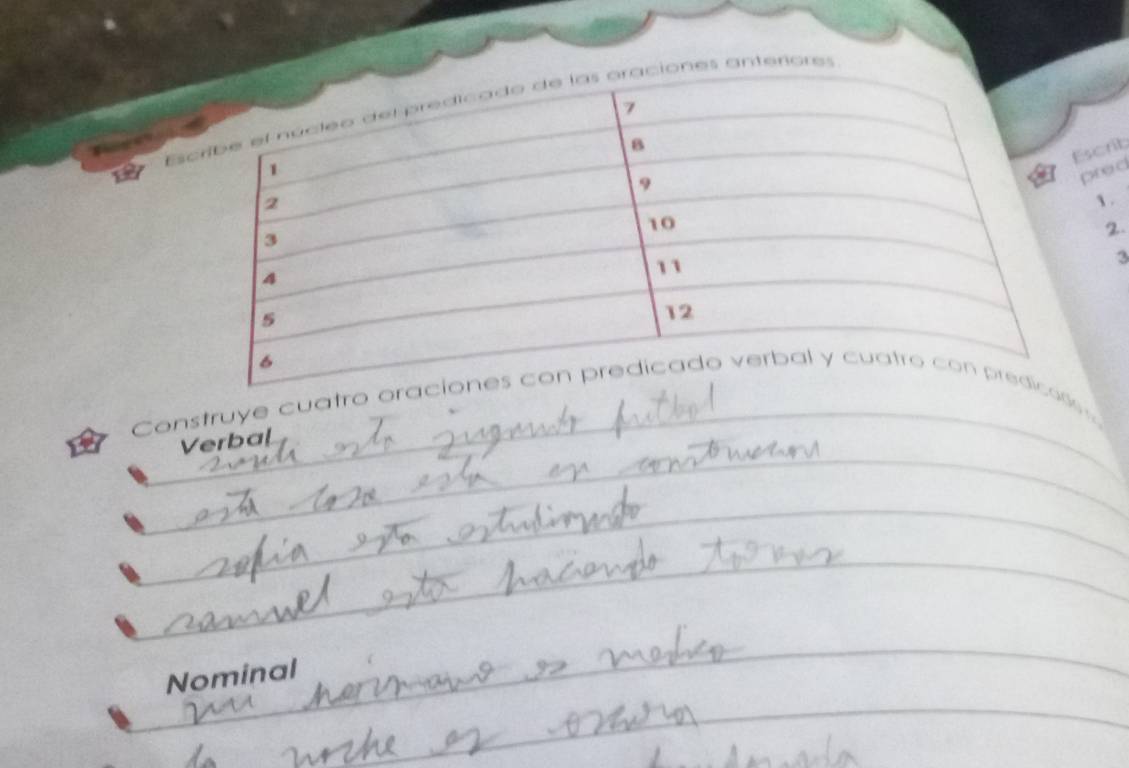 Escribe el núcleo del predicado de las oraciones anteriores.
1
2
3
4
5
6
7
8
9
10
11
12
Construye cuatro oraciones con predicado verbal y cuatro con predicado
Verbal
está jugando futbol
esta casa esta en construccion
sofia esta estudiando
samuel esta haciendo
Nominal
mi hermano es medico
la noche es oscura
Escrib
pred
1.
2.
3